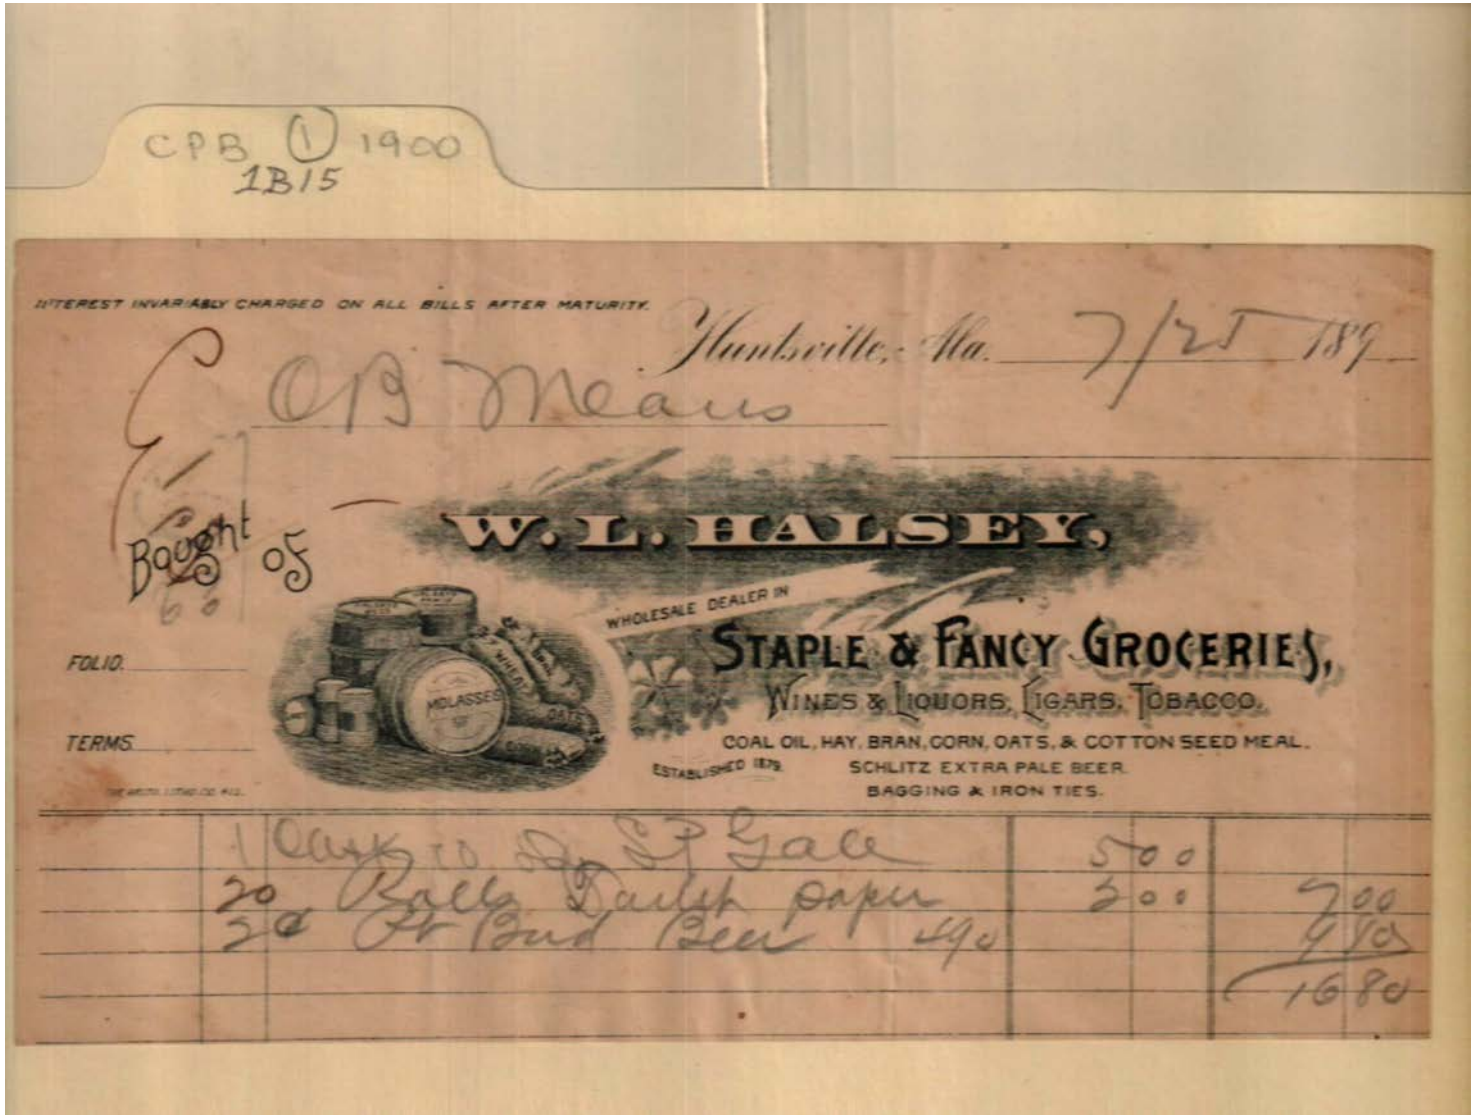 CPB ① 1900
1B15
INTEREST INVARIABLY CHARGED ON ALL BILLS AFTER MATURITY.
Huntsville, Ala. 7/25 189
CB Means
Bought of
W. L. HALSEY,
WHOLESALE DEALER IN
STAPLE & FANCY GROCERIES,
WINES & LIQUORS, CIGARS, TOBACCO,
COAL OIL, HAY, BRAN, CORN, OATS, & COTTON SEED MEAL.
ESTABLISHED 1879.
SCHLITZ EXTRA PALE BEER.
BAGGING & IRON TIES.
FOLIO.
TERMS
MOLASSES
WHEAT
OATS
1 5 00
20 Rolls paper 2 00 7 00
2 Bud Beer 490 9 80
16 80